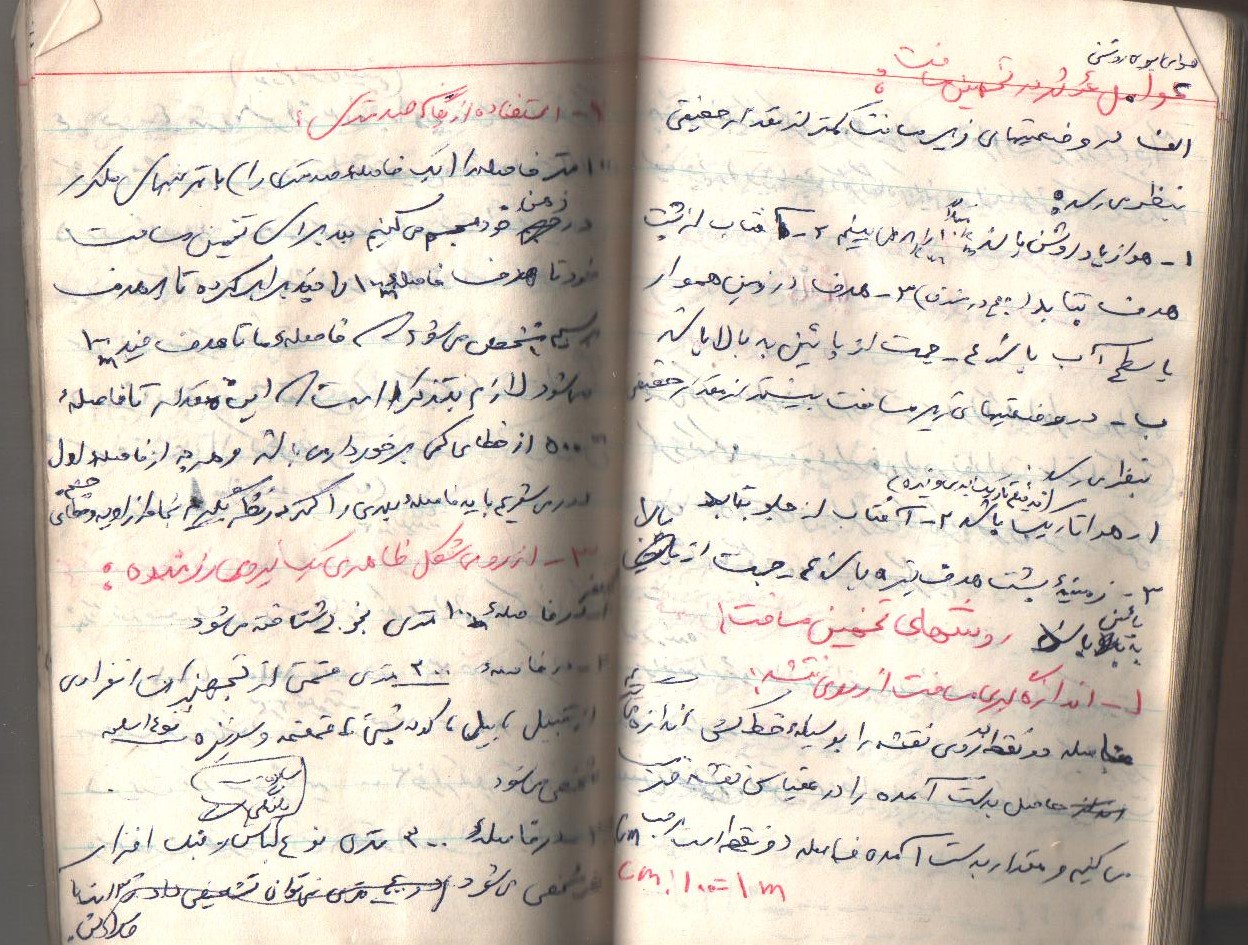 عوامل مؤثر در تخمین مسافت:
الف در وضعیتهای زیر مسافت کمتر از مقدار حقیقی
بنظر می رسد:
۱- هوا زیاد روشن باشد ۲- آفتاب از پشت
هدف بتابد ۳- هدف در زمین هموار
یا سطح آب باشد ۴- جهت از پائین به بالا باشد
ب- در وضعیتهای زیر مسافت بیشتر از مقدار حقیقی
بنظر می رسد
۱- هوا تاریک باشد ۲- آفتاب از جلو بتابد
۳- زمینهٔ پشت هدف تیره باشد ۴- جهت از بالا
به پائین باشد
روشهای تخمین مسافت:
۱- اندازه گیری مسافت از روی نقشه:
فاصله دو نقطه روی نقشه را بوسیلهٔ خط کش اندازه
حاصل بدست آمده را در مقیاس نقشه ضرب
می کنیم و مقدار بدست آمده فاصله دو نقطه است برحسب cm
cm ÷ ۱۰۰ = ۱ m
۲- استفاده از یکای صد متری:
۱۰۰ متر فاصله را (یک فاصلهٔ صد متری را) با تمرینهای مکرر
در ذهن خود مجسم می کنیم بعد برای تخمین مسافت
خود تا هدف فاصلهٔ ۱۰۰ m را چند برابر کرده تا به هدف
برسیم مشخص می شود که فاصلهٔ ما تا هدف چند ۱۰۰ m
می شود لازم بتذکر است که این مقدار تا فاصلهٔ
۵۰۰ m از خطای کمی برخوردار می باشد و هر چه از فاصله اول
دور می شویم باید فاصلهٔ بعدی را کمتر در نظر بگیریم بخاطر زاویه و خطای چشم
۳- از روی شکل ظاهری یک نیروی رزمنده:
در فاصلهٔ ۱۰۰ متری بخوبی شناخته می شود
۲- در فاصلهٔ ۲۰۰ متری قسمتی از تجهیزات انفرادی
از قبیل بیلچه کوله پشتی قمقمه و سرنیزه نوع اسلحه
مشخص می شود
در فاصلهٔ ۳۰۰ متری نوع لباس افراد
مشخص می شود